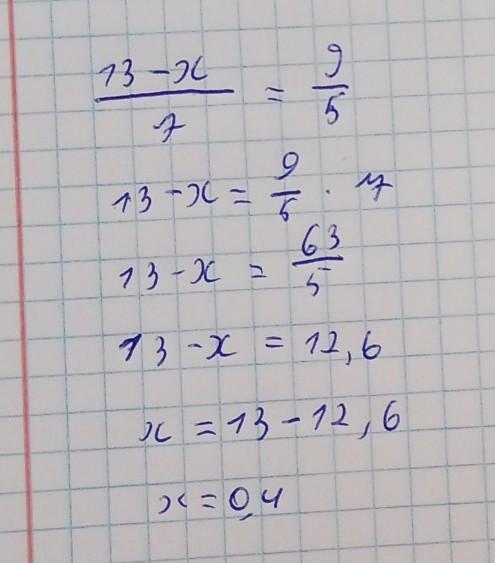 13-x/7 = 9/5
13-x = 9/5 · 7
13-x = 63/5
13-x = 12,6
x = 13-12,6
x = 0,4